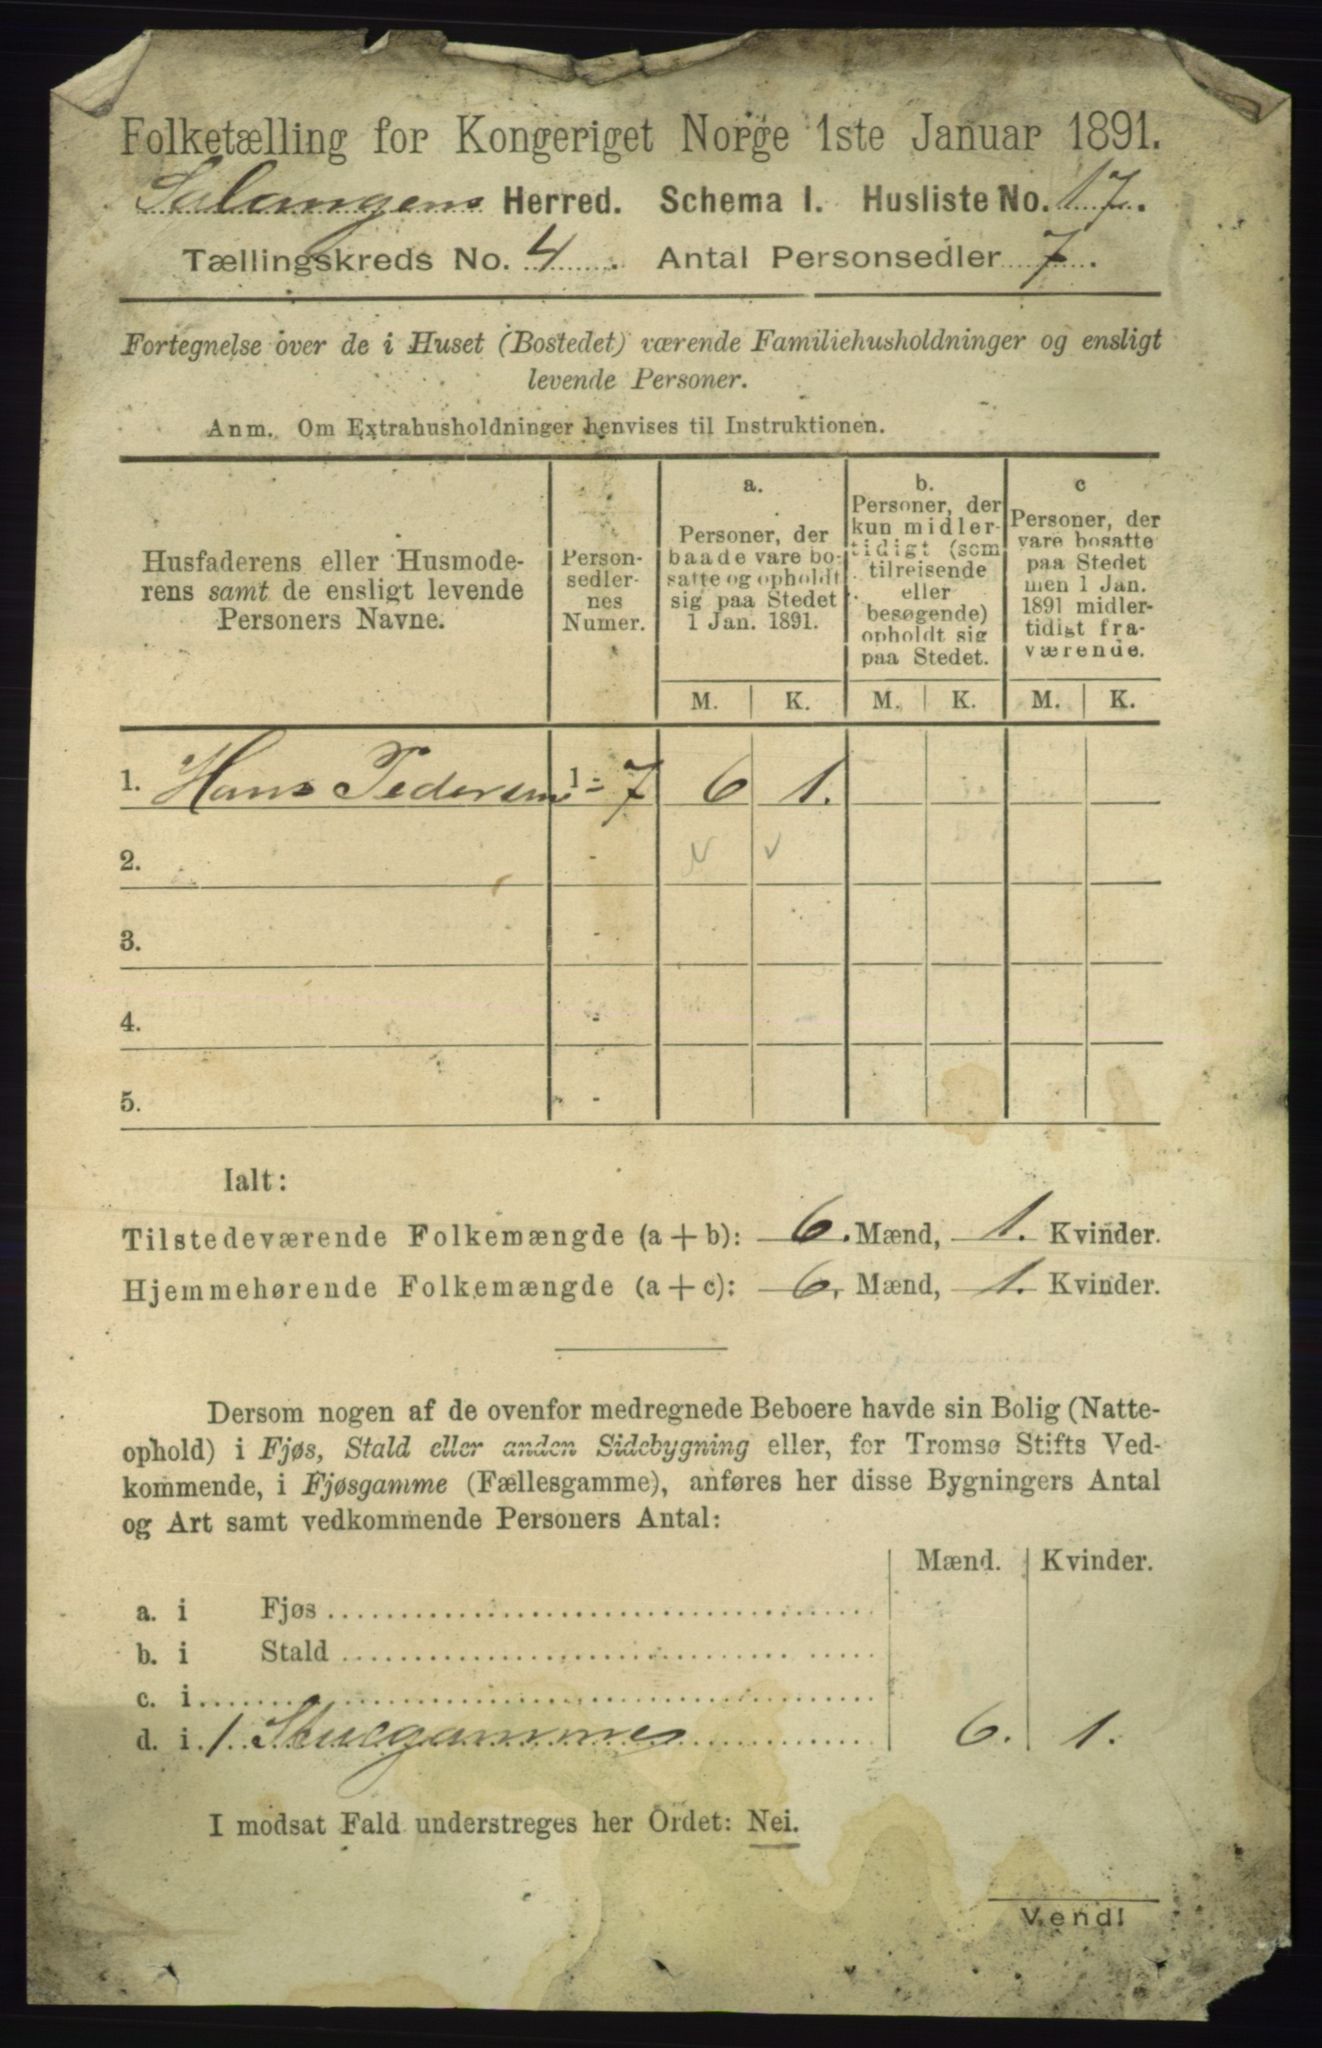 Folketælling for Kongeriget Norge 1ste Januar 1891.
Salangens Herred. Schema I. Husliste No. 17.
Tællingskreds No. 4. Antal Personsedler 7.
Fortegnelse over de i Huset (Bostedet) værende Familiehusholdninger og ensligt
levende Personer.
Anm. Om Extrahusholdninger henvises til Instruktionen.
Husfaderens eller Husmode-
rens samt de ensligt levende
Personers Navne.
Person-
sedler-
nes
Numer.
a.
Personer, der
baade vare bo-
satte og opholdt
sig paa Stedet
1 Jan. 1891.
b.
Personer, der
kun midler-
tidigt (som
tilreisende
eller
besøgende)
opholdt sig
paa Stedet.
c
Personer, der
vare bosatte
paa Stedet
men 1 Jan.
1891 midler-
tidigt fra-
værende.
M. K. M. K. M. K.
1. Hans Pedersen 1 - 7 6 1.
2. -
3. -
4. -
5. -
Ialt:
Tilstedeværende Folkemængde (a + b): 6. Mænd, 1. Kvinder.
Hjemmehørende Folkemængde (a + c): 6. Mænd, 1. Kvinder.
Dersom nogen af de ovenfor medregnede Beboere havde sin Bolig (Natte-
ophold) i Fjøs, Stald eller anden Sidebygning eller, for Tromsø Stifts Ved-
kommende, i Fjøsgamme (Fællesgamme), anføres her disse Bygningers Antal
og Art samt vedkommende Personers Antal:
Mænd. Kvinder.
a. i Fjøs
b. i Stald
c. i
d. i 1 Stuegamme 6. 1.
I modsat Fald understreges her Ordet: Nei.
Vend!